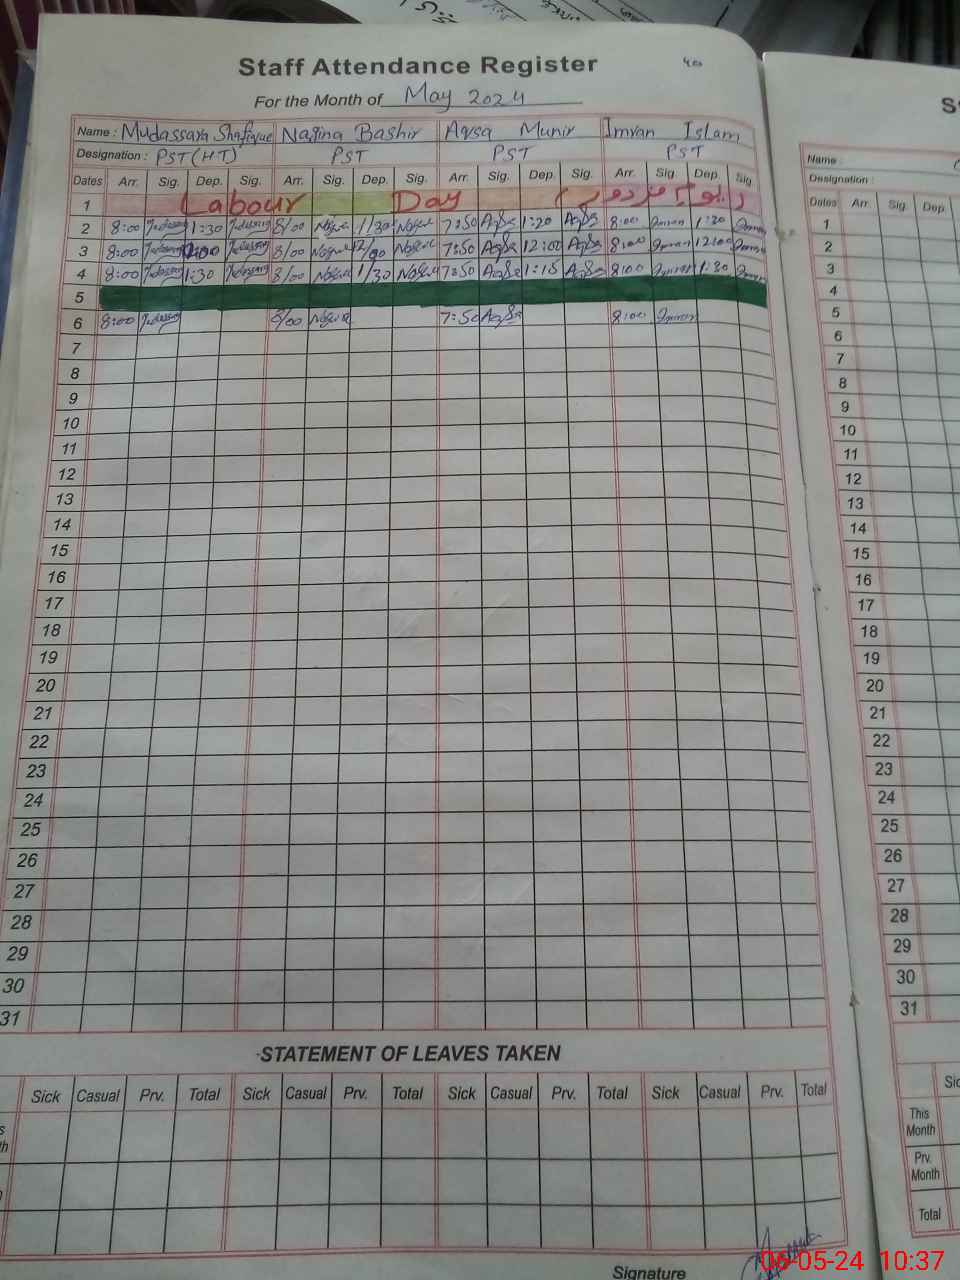 Staff Attendance Register
40
For the Month of May 2024
Name : Mudassara Shafique Nagina Bashir Aqsa Munir Imran Islam
Designation : PST (HT) PST PST PST
Dates Arr. Sig. Dep. Sig. Arr. Sig. Dep. Sig. Arr. Sig. Dep. Sig. Arr. Sig. Dep. Sig.
1 Labour Day
2 8:00 1:30 8/00 1/30 7:50 Aqsa 1:20 Aqsa 8:00 Imran 1:30 Imran
3 8:00 8/00 12/00 7:50 Aqsa 12:00 Aqsa 8:00 Imran 12:00 Imran
4 8:00 1:30 8/00 1/30 7:50 Aqsa 1:15 Aqsa 8:00 Imran 1:30 Imran
5
6 8:00 8/00 7:50 Aqsa 8:00 Imran
7
8
9
10
11
12
13
14
15
16
17
18
19
20
21
22
23
24
25
26
27
28
29
30
31
STATEMENT OF LEAVES TAKEN
Sick Casual Prv. Total Sick Casual Prv. Total Sick Casual Prv. Total Sick Casual Prv. Total
Signature
Name :
Designation :
Dates Arr. Sig. Dep.
1
2
3
4
5
6
7
8
9
10
11
12
13
14
15
16
17
18
19
20
21
22
23
24
25
26
27
28
29
30
31
This
Month
Prv.
Month
Total
06-05-24 10:37